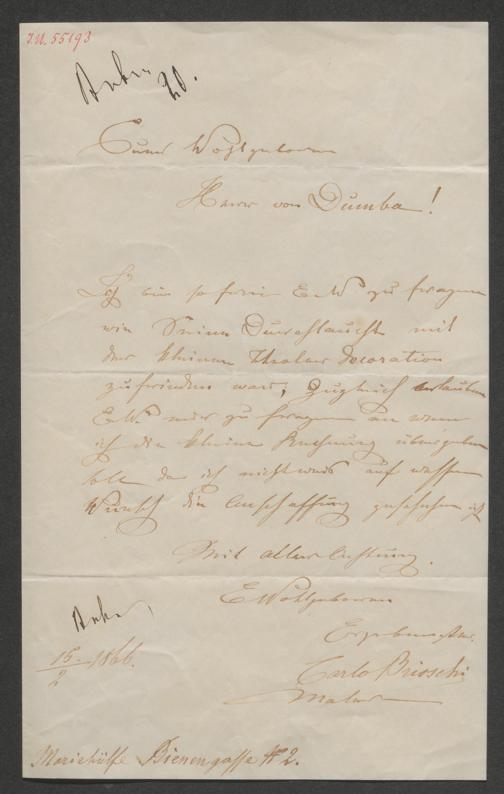 I.N. 55193
20.
Euer Wohlgeboren
Herr von Dumba!
Ich bin so frei E.W. zu fragen
wie Seine Durchlaucht mit
der kleinen Theater Decoration
zufrieden war, zugleich erlauben
E.W. mir zu fragen an wenn
ich die kleine Rechnung übergeben
soll da ich nicht weis auf wessen
Wunsch die Anschaffung geschehen ist
Mit aller Achtung.
E Wohlgeboren
Ergebenster
Carlo Brioschi
Maler
15/2 1866.
Mariehülfe Bienengasse N° 2.